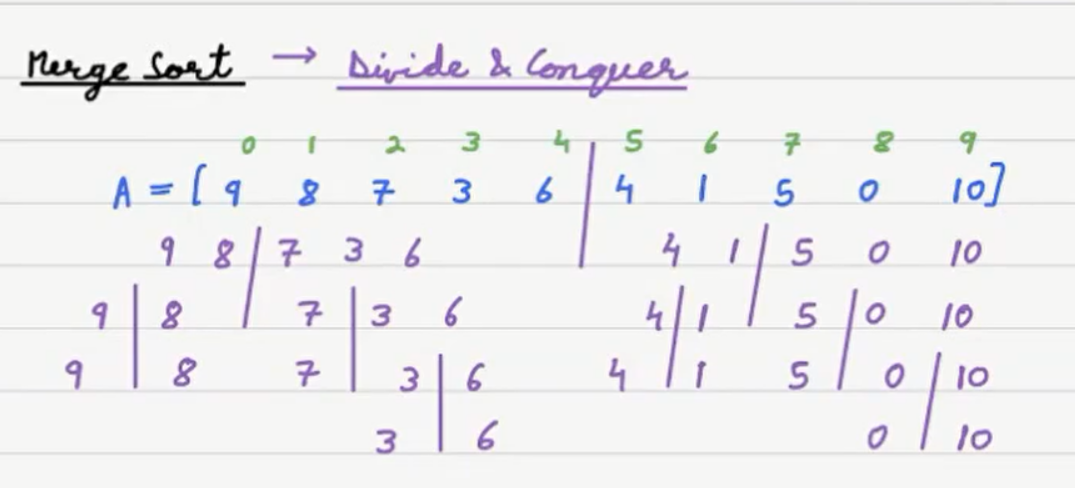 Merge Sort → Divide & Conquer
0 1 2 3 4 5 6 7 8 9
A = [ 9 8 7 3 6 | 4 1 5 0 10]
9 8 | 7 3 6 4 1 | 5 0 10
9 | 8 7 | 3 6 4 | 1 5 | 0 10
9 8 7 3 | 6 4 1 5 0 | 10
3 6 0 10